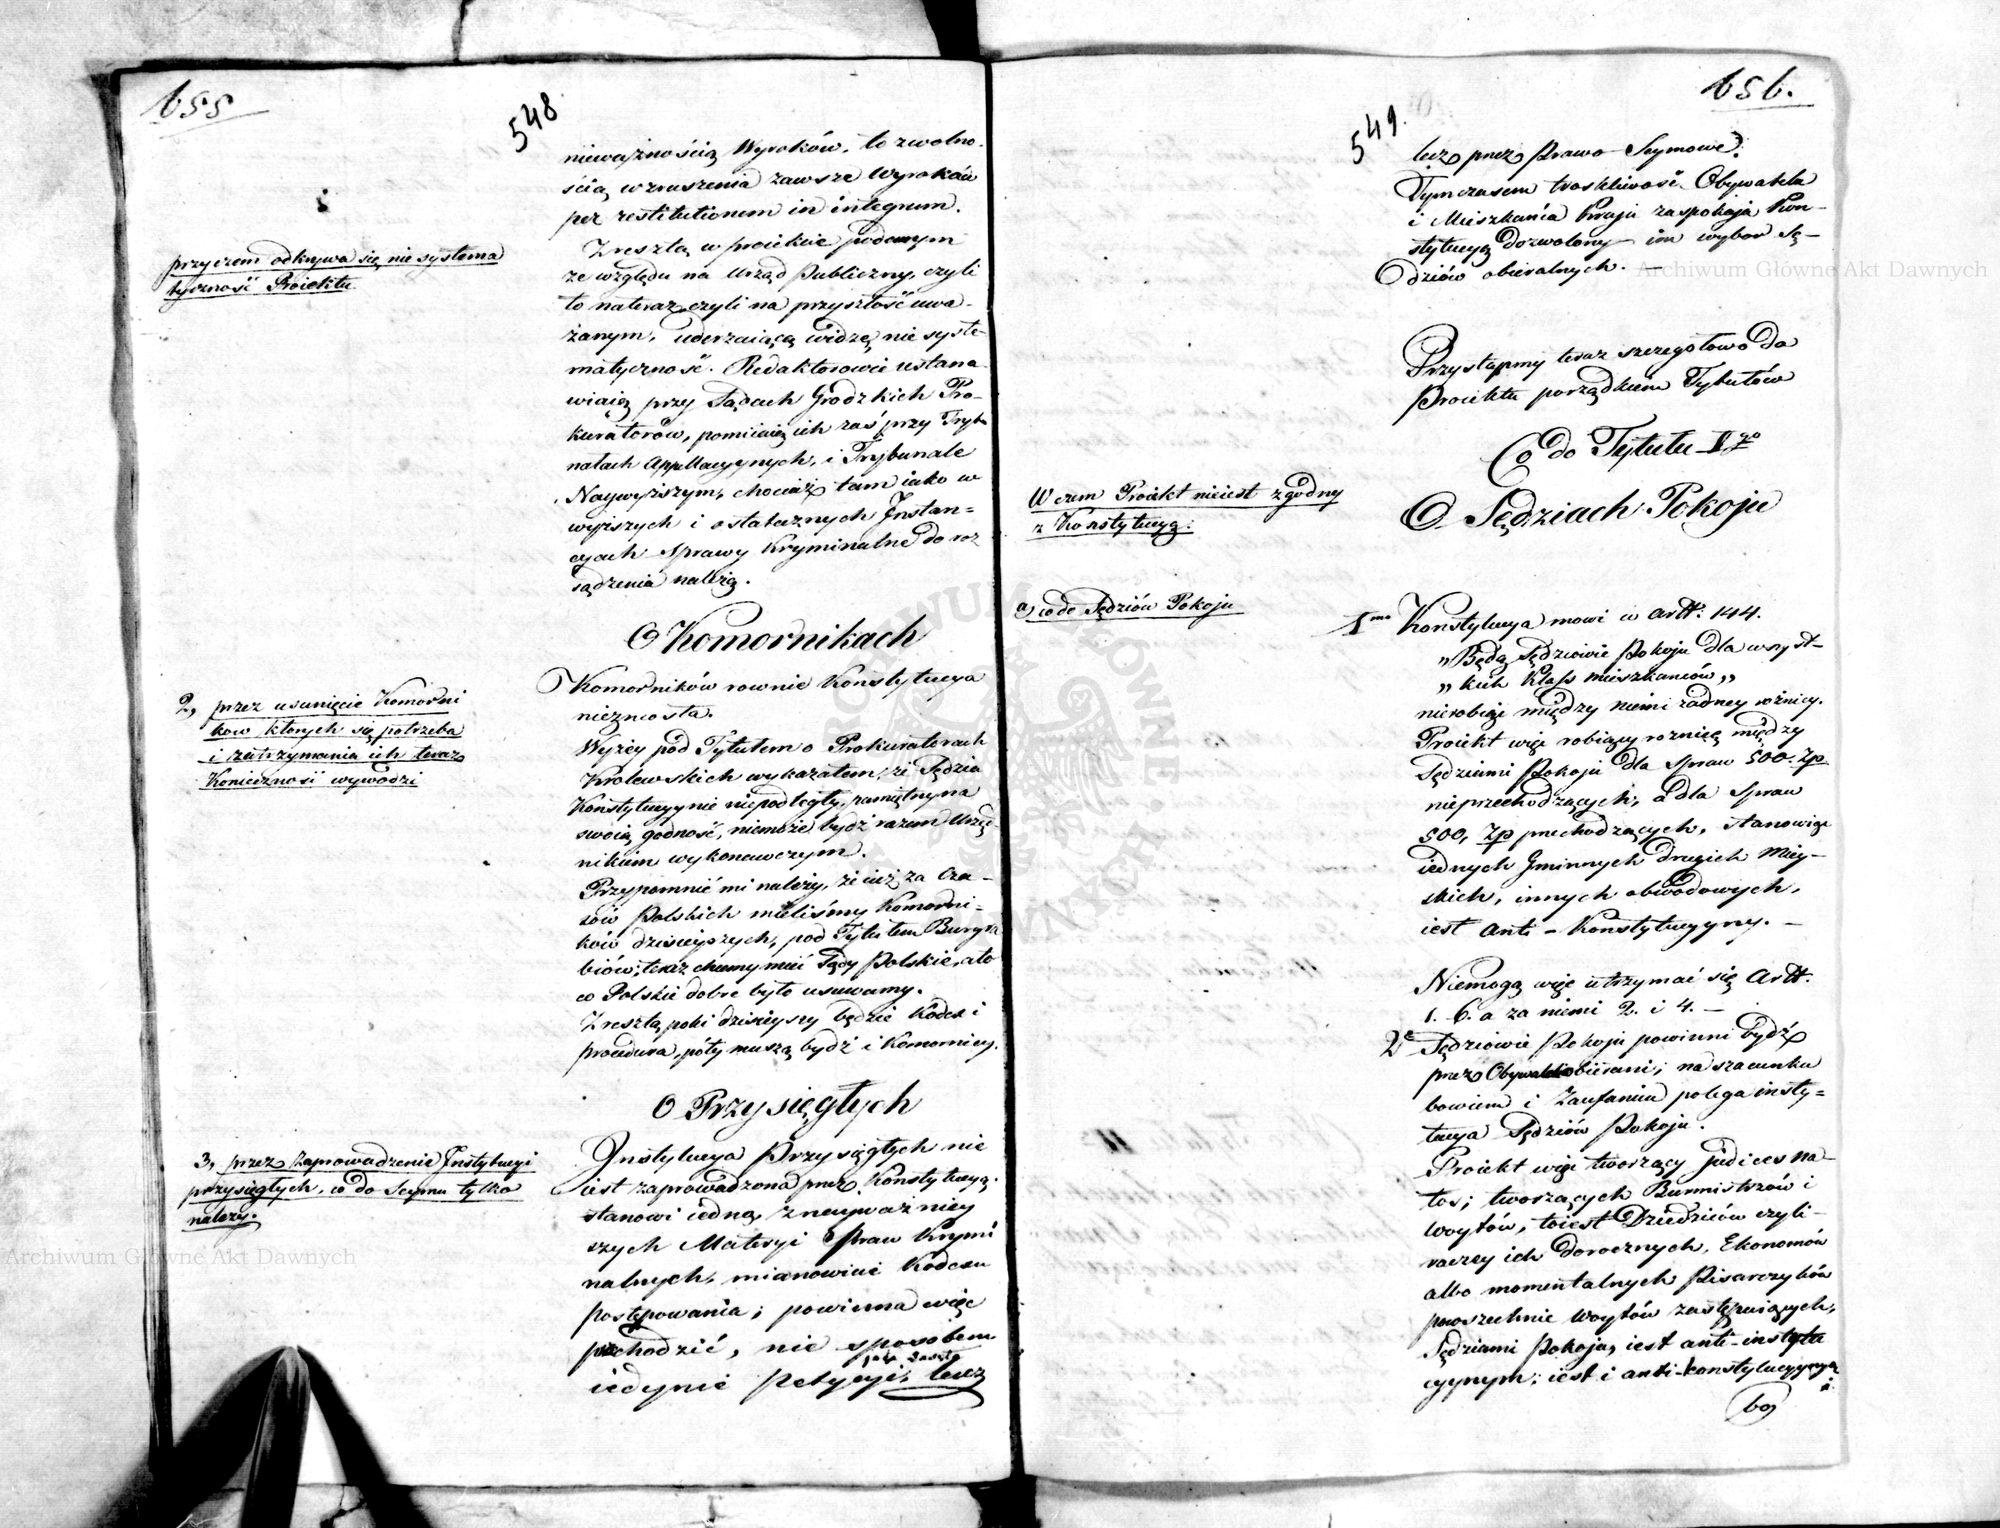 655
548
nieważnością Wyroków, to zwolno-
ścią wzruszenia zawsze Wyroków
per restitutionem in integrum.
przyczem odkrywa się nie systema
tyczność Proiektu
Zresztą w proiekcie podanym
ze względu na Urząd Publiczny, czyli
to nateraz czyli na przyszłość uwa-
żanym, uderzaiącą widzę nie syste-
matyczność. Redaktorowie ustana-
wiaią przy Sądach Grodzkich Pro-
kuratorów, pomiiaią ich zaś przy Trybu
nałach Appellacyynych, i Trybunale
Naywyższym, chociaż tam iako w
wyższych i ostatecznych Instan=
cyach sprawy Kryminalne do roz
sądzenia należą.
O Komornikach
2, przez usunięcie Komorni
kow których się potrzeba
i zatrzymania ich teraz
Konieczność wywodzi
Komorników rownie Konstytucya
niezniosła.
Wyżey pod Tytułem o Prokuratorach
Krolewskich wykazałem, że Sędzia
Konstytucyynie niepodległy, pamiętny na
swoią godność, niemoże bydź razem Urzęd-
nikiem wykonawczym.
Przypomnieć mi należy, że iuż za Cza-
sów Polskich mieliśmy Komorni-
ków dzisieyszych, pod Tytułem Burgra
biów; teraz chcemy mieć Sądy Polskie, a to
co Polskie dobre było usuwamy.
Zresztą poki dzisieyszy będzie Kodex i
procedura, póty muszą bydź i Komornicy.
O Przysięgłych
3, przez zaprowadzenie Instytucyi
przysięgłych, co do Seymu tylko
należy.
Instytucya Przysięgłych nie
iest zaprowadzona przez Konstytucyą.
stanowi iedną z nayważniey
szych Materyi Praw Krymi
nalnych, mianowicie Kodexu
postępowania; powinna więc
pochodzić, nie sposobem
iedynie petycyi, lecz
656.
549.
lecz przez Prawo Seymowe.
Tymczasem troskliwość Obywatela
i Mieszkańca Kraju zaspokaja Kon-
stytucyą dozwolony im wybor Sę-
dziów obieralnych. —
Przystąpmy teraz szczegołowo do
Proiektu porządkiem Tytułów
Co do Tytułu IIgo
O Sędziach Pokoju
W czem Proiekt nieiest zgodny
z Konstytucyą:
a, co do Sędziów Pokoju
1mo Konstytucya mowi w artt. 144.
„Będą Sędziowie Pokoju dla wszyst-
„kich Klass mieszkańców„
nierobiąc między niemi żadney rożnicy.
Proiekt więc robiący roznicę między
Sędziami Pokoju dla Spraw 500. Zp
nieprzechodzących, a dla Spraw
500, Zp przechodzących, stanowiąc
iednych Gminnych drugich Miey-
skich, innych obwodowych,
iest anti-Konstytucyyny. —
Niemogą więc utrzymać się Artt.
1. 6. a za niemi 2. i 4. —
2e Sędziowie Pokoju powinni bydź
przez Obywateli obierani; na szacunku
bowiem i Zaufaniu polega insty=
tucya Sędziów Pokoju.
Proiekt więc tworzący judices na-
tos; tworzących Burmistrzów i
Woytów, toiest Dziedziców czyli-
raczey ich dorocznych, Ekonomów
albo momentalnych Pisarczyków
powszechnie Woytów zastępuiących,
Sędziami Pokoju, iest anti-instytu
cyynym; iest i anti-konstytucyynym
bo